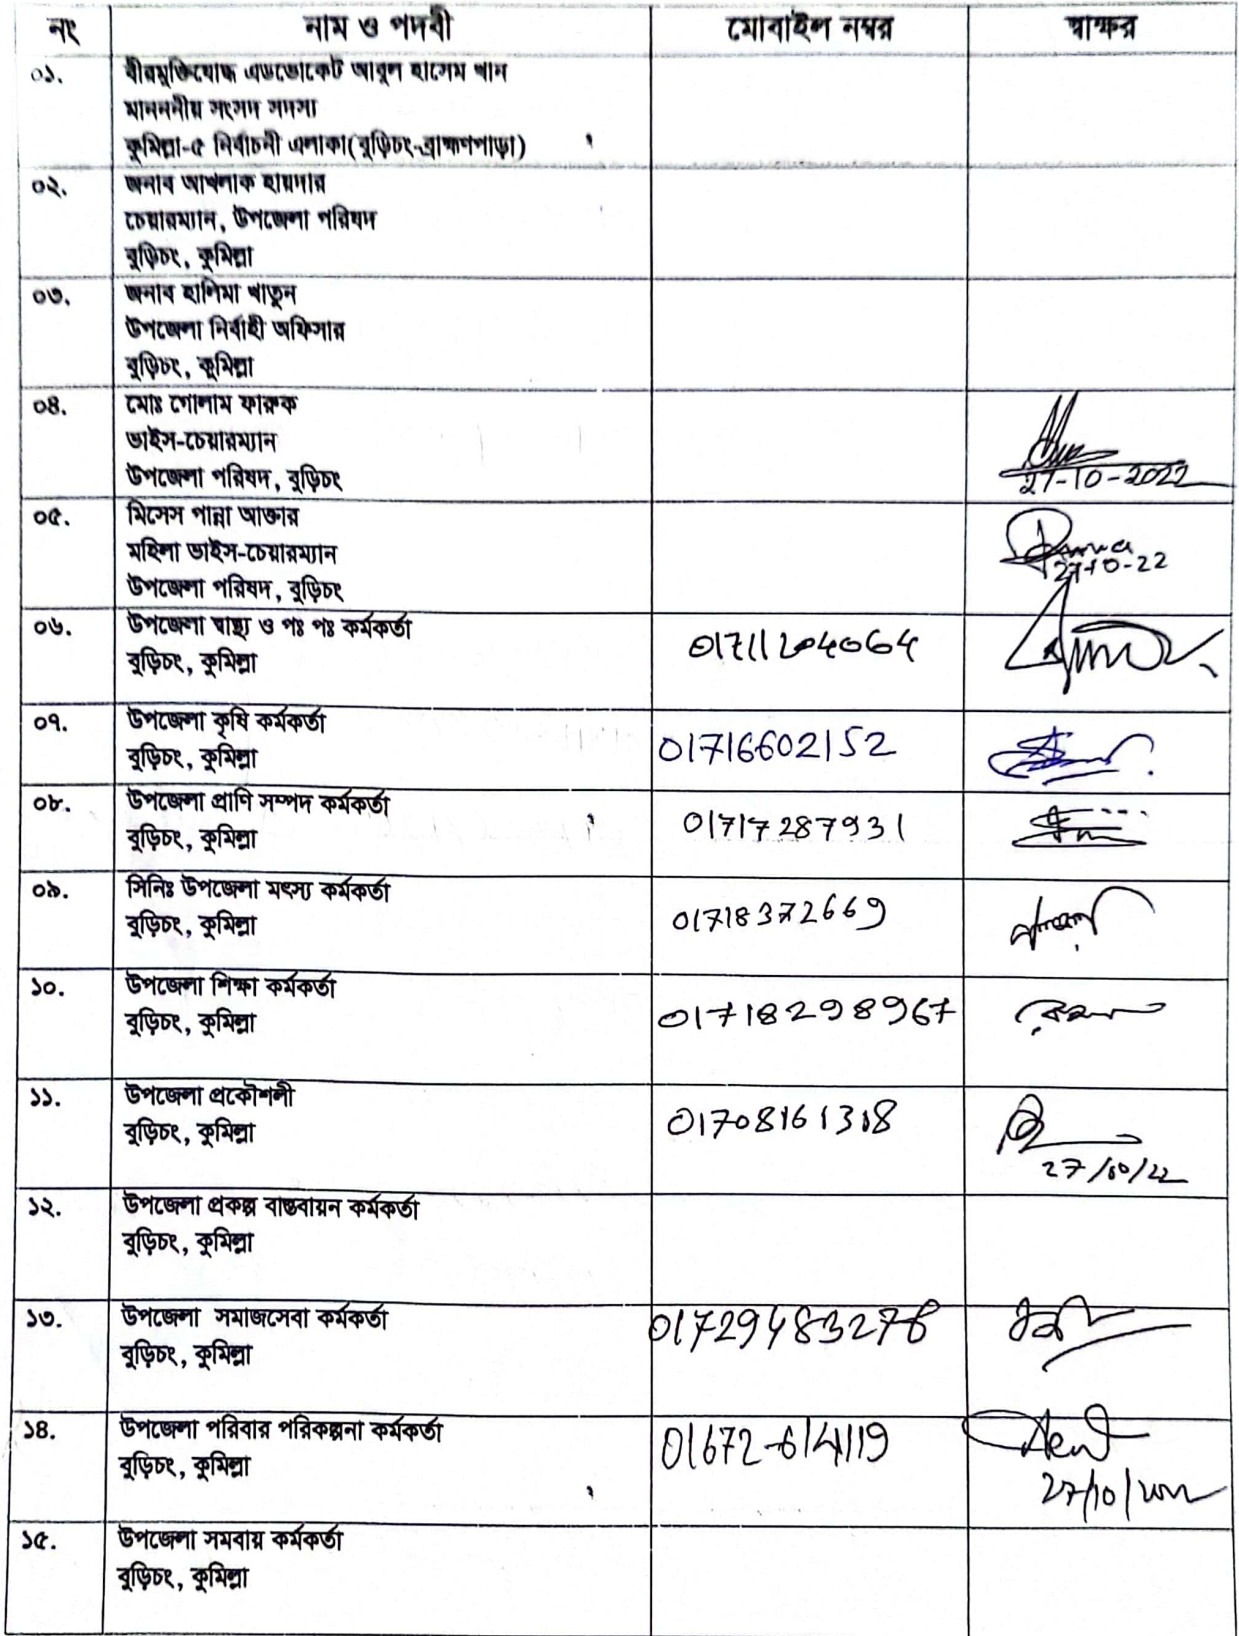 নং নাম ও পদবী মোবাইল নম্বর স্বাক্ষর
০১. বীরমুক্তিযোদ্ধ এডভোকেট আবুল হাসেম খান
মানননীয় সংসদ সদস্য
কুমিল্লা-৫ নির্বাচনী এলাকা(বুড়িচং-ব্রাহ্মণপাড়া)
০২. জনাব আখলাক হায়দার
চেয়ারম্যান, উপজেলা পরিষদ
বুড়িচং, কুমিল্লা
০৩. জনাব হালিমা খাতুন
উপজেলা নির্বাহী অফিসার
বুড়িচং, কুমিল্লা
০৪. মোঃ গোলাম ফারুক
ভাইস-চেয়ারম্যান
উপজেলা পরিষদ, বুড়িচং 27-10-2022
০৫. মিসেস পান্না আক্তার
মহিলা ভাইস-চেয়ারম্যান
উপজেলা পরিষদ, বুড়িচং 27-10-22
০৬. উপজেলা স্বাস্থ্য ও পঃ পঃ কর্মকর্তা
বুড়িচং, কুমিল্লা 01711204064
০৭. উপজেলা কৃষি কর্মকর্তা
বুড়িচং, কুমিল্লা 01716602152
০৮. উপজেলা প্রাণি সম্পদ কর্মকর্তা
বুড়িচং, কুমিল্লা 01717287931
০৯. সিনিঃ উপজেলা মৎস্য কর্মকর্তা
বুড়িচং, কুমিল্লা 01718372669
১০. উপজেলা শিক্ষা কর্মকর্তা
বুড়িচং, কুমিল্লা 01718298967
১১. উপজেলা প্রকৌশলী
বুড়িচং, কুমিল্লা 01708161318
27/10/22
১২. উপজেলা প্রকল্প বাস্তবায়ন কর্মকর্তা
বুড়িচং, কুমিল্লা
১৩. উপজেলা সমাজসেবা কর্মকর্তা 01729483278
বুড়িচং, কুমিল্লা
১৪. উপজেলা পরিবার পরিকল্পনা কর্মকর্তা 01672-614119
বুড়িচং, কুমিল্লা
১৫. উপজেলা সমবায় কর্মকর্তা
বুড়িচং, কুমিল্লা